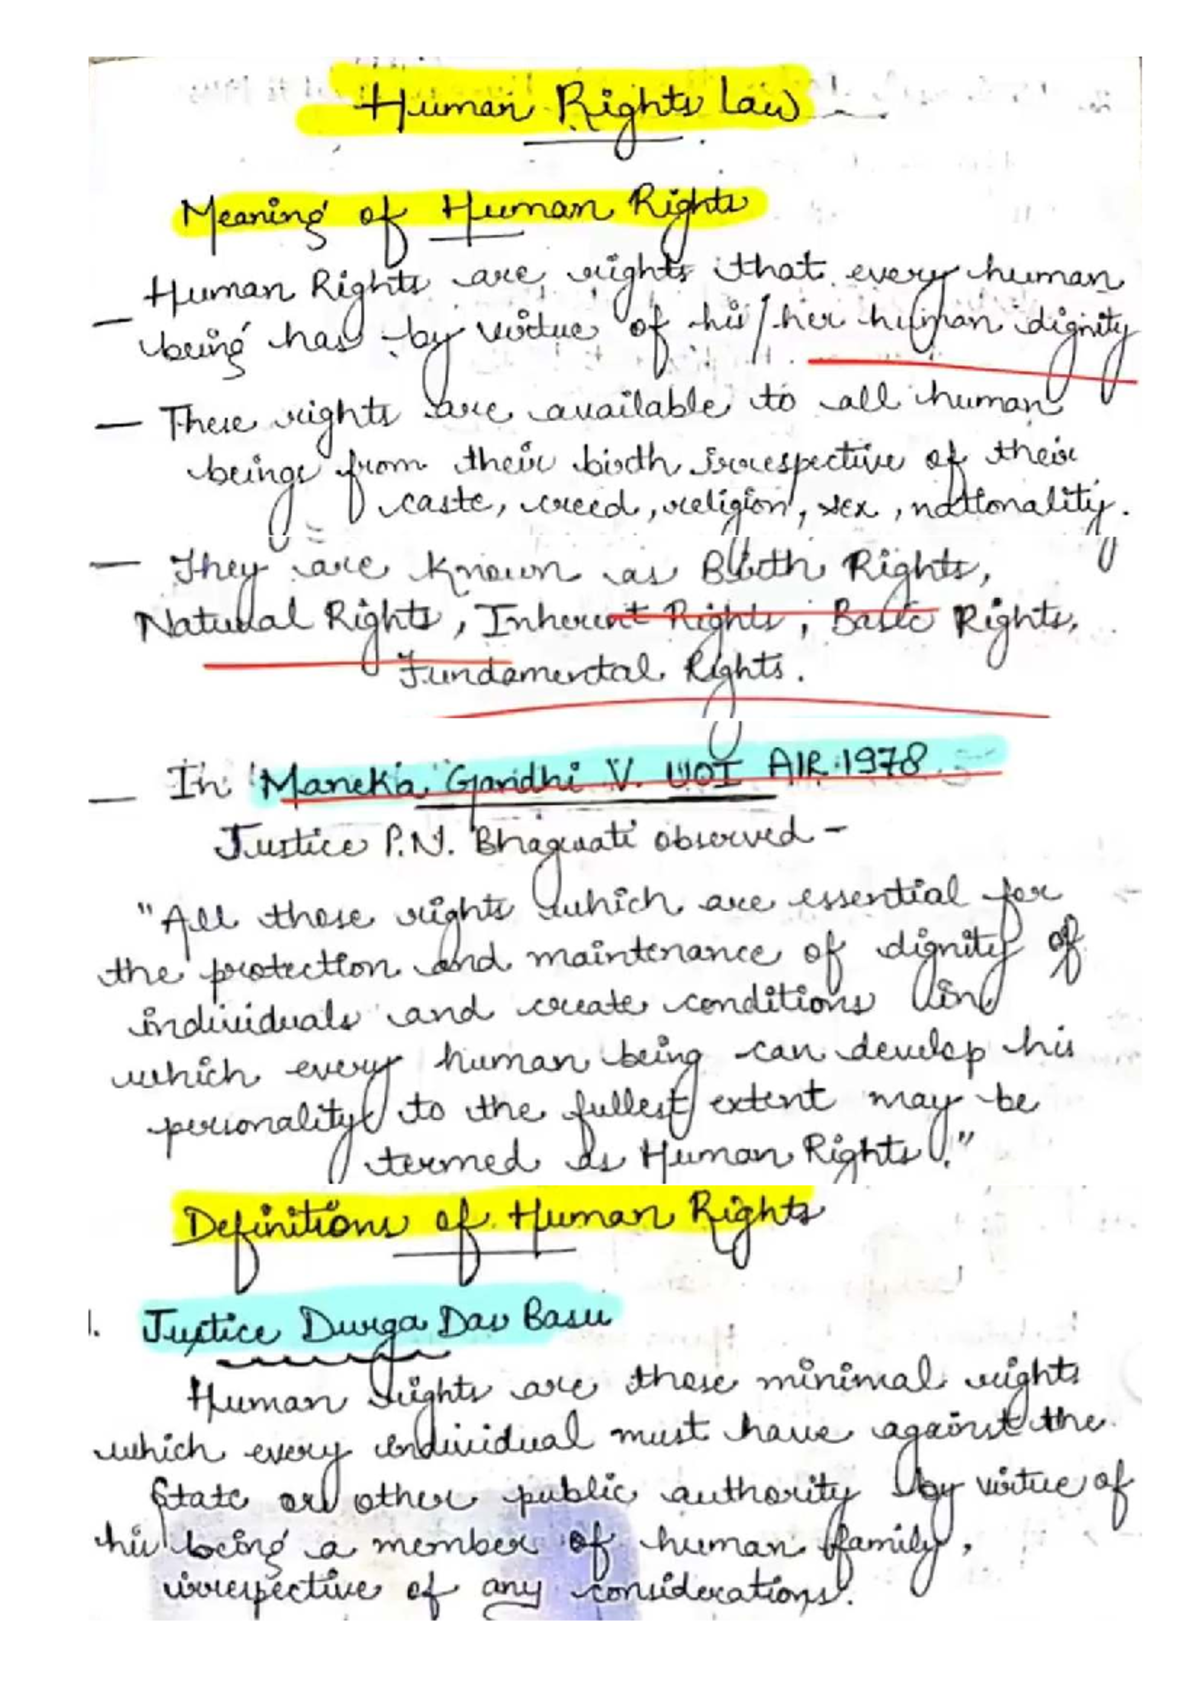 Human Rights Law
Meaning of Human Rights
— Human Rights are rights that every human
being has by virtue of his/her human dignity
— These rights are available to all human
beings from their birth irrespective of their
caste, creed, religion, sex, nationality.
— They are known as Birth Rights,
Natural Rights, Inherent Rights, Basic Rights,
Fundamental Rights.
— In Maneka Gandhi V. UOI AIR 1978
Justice P.N. Bhagwati observed -
"All those rights which are essential for
the protection and maintenance of dignity of
individuals and create conditions in
which every human being can develop his
personality to the fullest extent may be
termed as Human Rights."
Definitions of Human Rights
1. Justice Durga Das Basu
Human rights are those minimal rights
which every individual must have against the
State or other public authority by virtue of
his being a member of human family,
irrespective of any considerations.